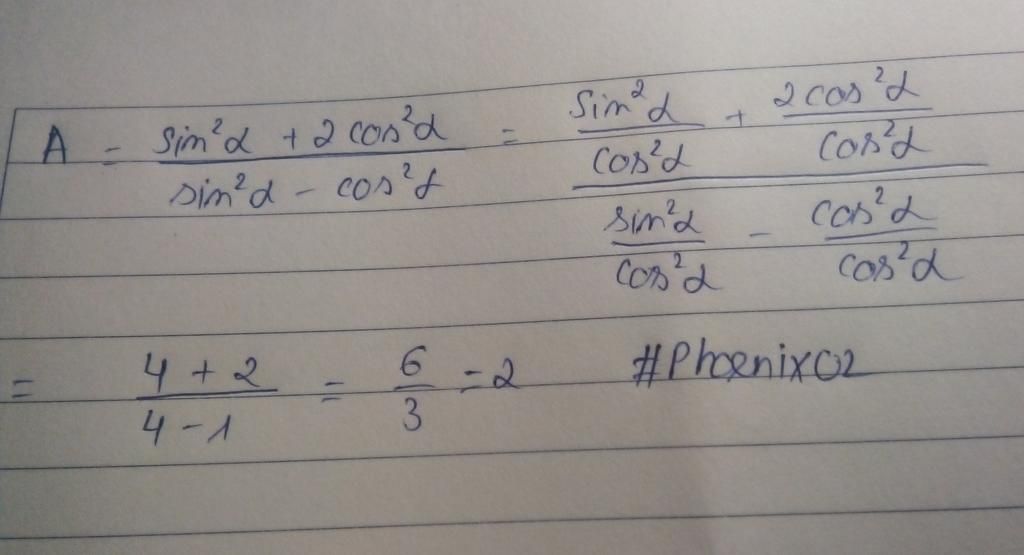 A = \frac{sin²α + 2cos²α}{sin²α - cos²α} = \frac{\frac{sin²α}{cos²α} + \frac{2cos²α}{cos²α}}{\frac{sin²α}{cos²α} - \frac{cos²α}{cos²α}}
= \frac{4+2}{4-1} = \frac{6}{3} = 2 #Phoenix02